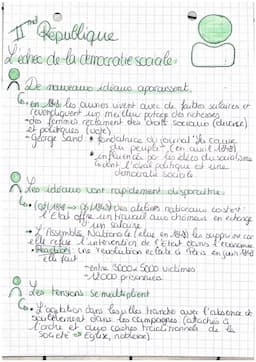 IInd République
L'échec de la démocratie sociale
De nouveaux idéaux apparaissent.
en 1848 les ouvriers vivent avec de faibles salaires et
revendiquent un meilleur partage des richesses
des femmes réclament des droits sociaux (divorce)
et politiques (vote)
George Sand • fondatrice du journal "la cause
du peuple" (en avril 1848)
• influencée par les idées du socialisme
dont l'idéal politique est une
démocratie sociale
Les idéaux vont rapidement disparaître
des ateliers nationaux
l'État offre un travail aux chômeurs en échange
d'un salaire
L'Assemblée Nationale (élue en 1848) les supprime car
elle refuse l'intervention de l'État dans l'économie
Réaction: une révolution éclate à Paris en juin 1848
elle fait
victimes
prisonniers
Les tensions se multiplient
L'agitation dans les villes tranche avec l'absence de
soulèvement dans les campagnes (attachés à
l'ordre et aux cadres traditionnels de la
société → Église, noblesse)